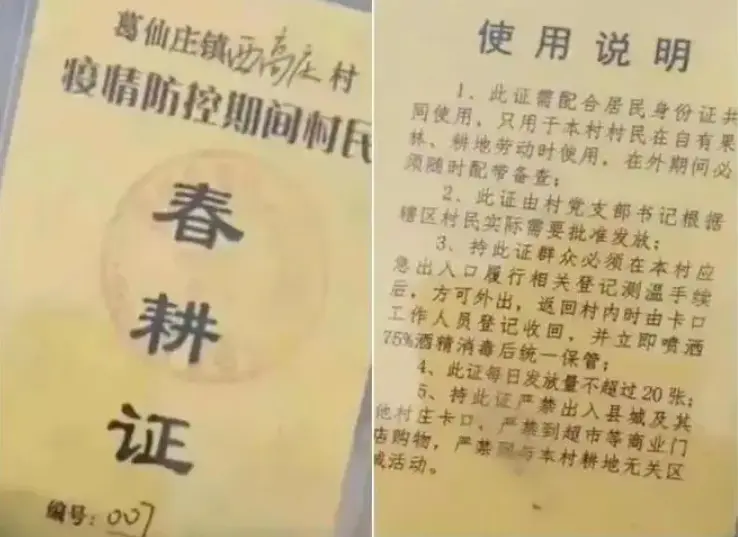 葛仙庄镇西高庄村
疫情防控期间村民
春
耕
证
编号:007
使用说明
1、此证需配合居民身份证共
同使用,只用于本村村民在自有果
林、耕地劳动时使用,在外期间必
须随时配带备查;
2、此证由村党支部书记根据
辖区村民实际需要批准发放;
3、持此证群众必须在本村应
急出入口履行相关登记测温手续
后,方可外出,返回村内时由卡口
工作人员登记收回,并立即喷洒
75%酒精消毒后统一保管;
4、此证每日发放量不超过20张;
5、持此证严禁出入县城及其
他村庄卡口、严禁到超市等商业门
店购物,严禁到与本村耕地无关区
域活动。